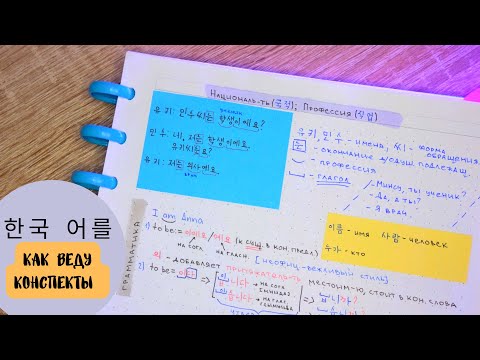 한국 어를
КАК ВЕДУ
КОНСПЕКТЫ
НАЦИОНАЛЬ-ТЬ (국적); ПРОФЕССИЯ (직업)
유리: 민수씨는 학생이에요?
민수: 네, 저는 학생이에요.
유리씨는요?
유리: 저는 의사예요.
유리, 민수 – имена, 씨 – форма
обращения
는 – окончание одуш. подлежащ.
– профессия
– глагол
– Минсу, ты ученик?
– Да, а ты?
– Я врач
이름 – имя 사람 – человек
누가 – кто
ГРАММАТИКА
I am Anna
1) to be = 이에요 / 예요 (к сущ в кон. предл)
на согл на гласн. (неофиц-вежливый стиль)
의 – добавляет притяжательн местоим-ю, стоит в кон. слова
2) to be = 이다 ⇒
입니다 → на согл
ㅂ니다 → на глас